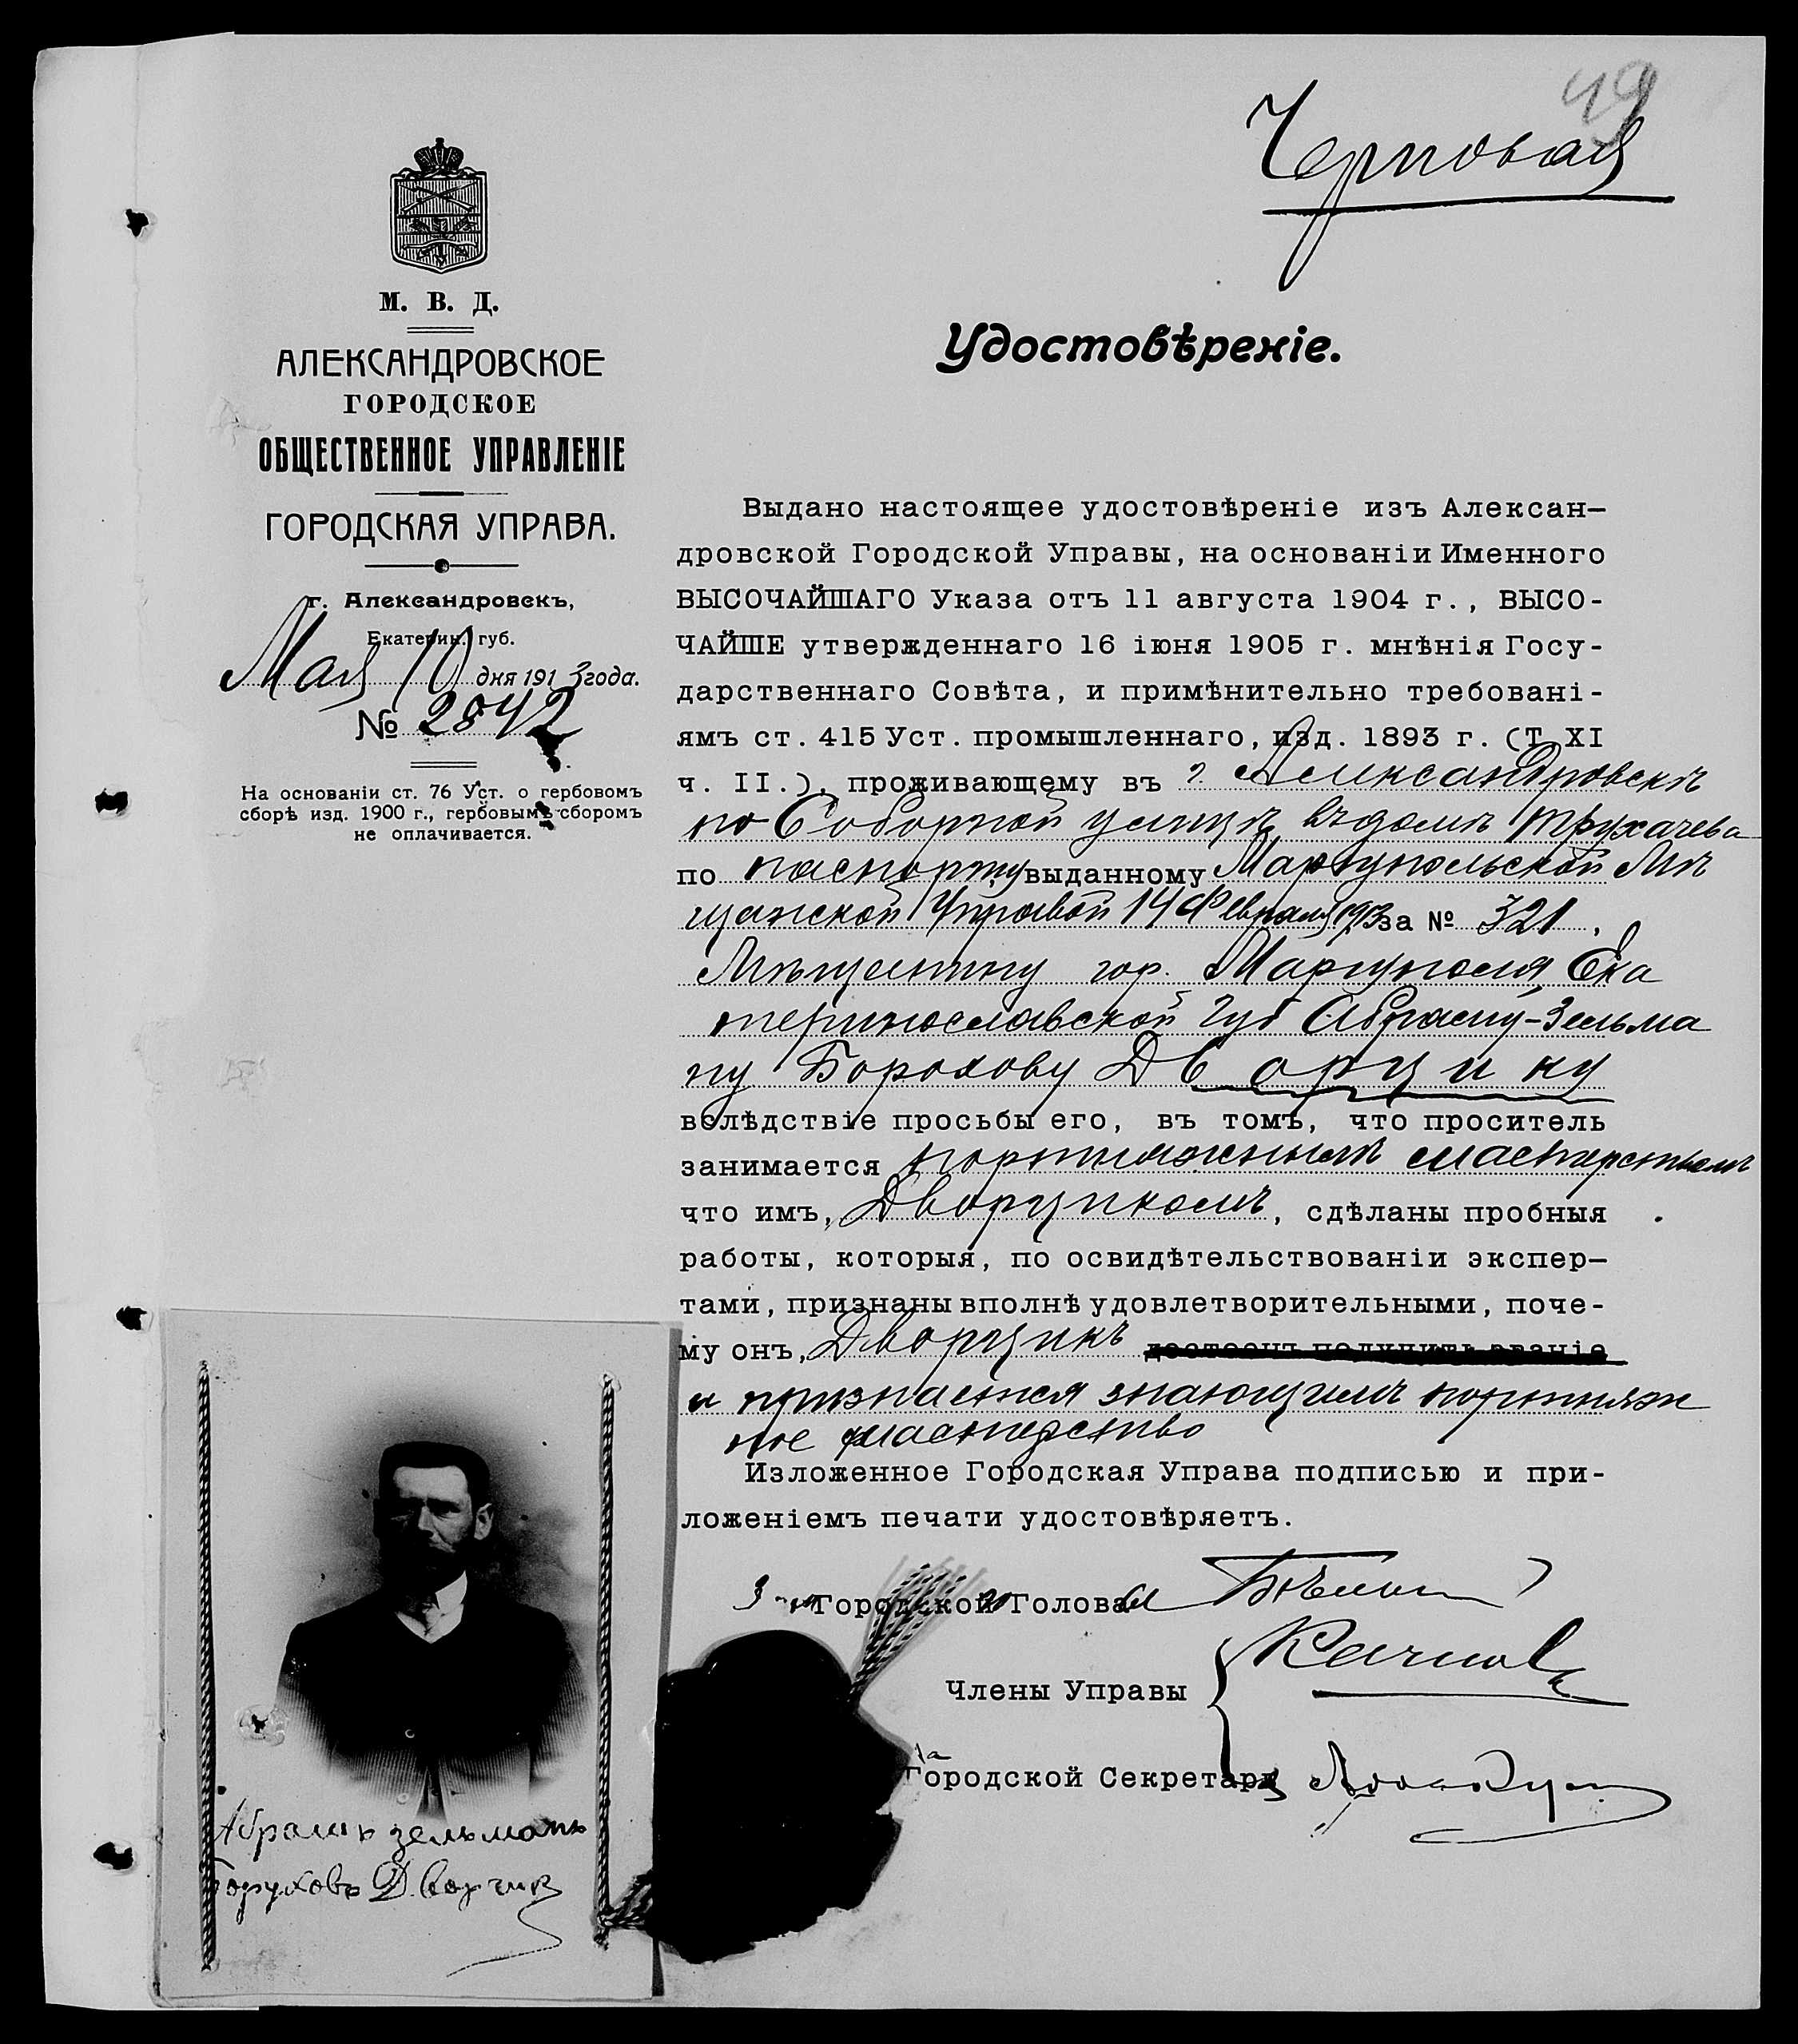 49
Черновая
М. В. Д.
АЛЕКСАНДРОВСКОЕ
ГОРОДСКОЕ
ОБЩЕСТВЕННОЕ УПРАВЛЕНІЕ
ГОРОДСКАЯ УПРАВА.
г. Александровскъ,
Екатерин. губ.
Мая 10 дня 1913 года.
№ 2842
На основаніи ст. 76 Уст. о гербовомъ
сборѣ изд. 1900 г., гербовымъ сборомъ
не оплачивается.
Удостовѣреніе.
Выдано настоящее удостовѣреніе изъ Алексан-
дровской Городской Управы, на основаніи Именного
ВЫСОЧАЙШАГО Указа отъ 11 августа 1904 г., ВЫСО-
ЧАЙШЕ утвержденнаго 16 іюня 1905 г. мнѣнія Госу-
дарственнаго Совѣта, и примѣнительно требовані-
ямъ ст. 415 Уст. промышленнаго, изд. 1893 г. (Т. XI
ч. II.), проживающему въ г. Александровскѣ
по Соборной улицѣ, въ домѣ Трухачева
по паспорту выданному Маріупольской Мѣ
щанской Управой 14 Февраля 1913 за № 321,
Мѣщанину гор. Маріуполя, Ека
теринославской губ Абраму-Зельма
ну Борохову Дворцику
вслѣдствіе просьбы его, въ томъ, что проситель
занимается портняжнымъ мастерствомъ
что имъ, Дворцикомъ, сдѣланы пробныя
работы, которыя, по освидѣтельствованіи экспер-
тами, признаны вполнѣ удовлетворительными, поче-
му онъ, Дворцикъ достоенъ получить званіе
и признается знающимъ портняж
ное мастерство
Изложенное Городская Управа подписью и при-
ложеніемъ печати удостовѣряетъ.
Городской Голова
Члены Управы
Городской Секретарь
Абрамъ зельманъ
Боруховъ Дворчик